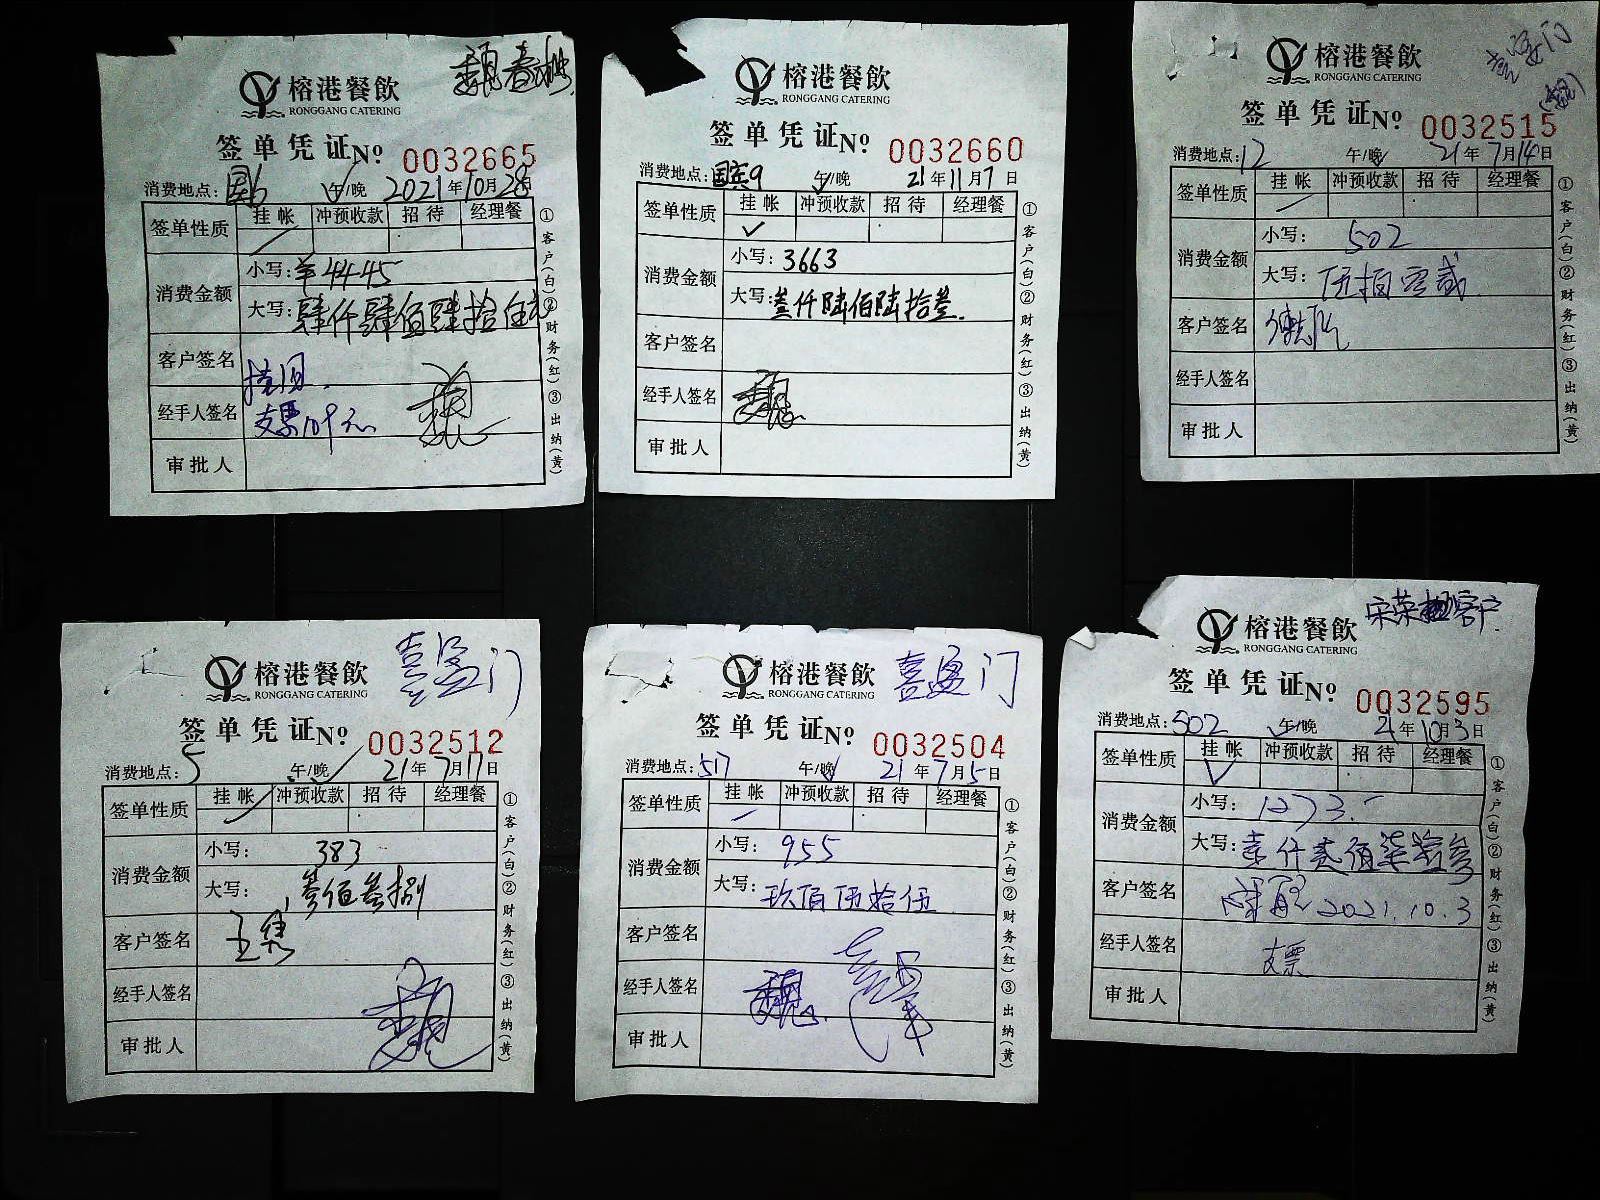 魏春梅
榕港餐飲
RONGGANG CATERING
签单凭证 Nº 0032665
消费地点: 国6 午/晚 2021年10月28日
签单性质 挂帐 冲预收款 招待 经理餐
消费金额
小写: ¥4445
大写: 肆仟肆佰肆拾伍元
客户签名
挂圆
经手人签名 支票109元 魏
审批人
①客户(白)②财务(红)③出纳(黄)
榕港餐飲
RONGGANG CATERING
签单凭证 Nº 0032660
消费地点: 国宾9 午/晚 21年11月7日
签单性质 挂帐 冲预收款 招待 经理餐
消费金额
小写: 3663
大写: 叁仟陆佰陆拾叁
客户签名
经手人签名 魏
审批人
①客户(白)②财务(红)③出纳(黄)
榕港餐飲
RONGGANG CATERING
签单凭证 Nº 0032515
消费地点: 12 午/晚 21年7月14日
签单性质 挂帐 冲预收款 招待 经理餐
消费金额
小写: 502
大写: 伍佰零贰
客户签名
经手人签名
审批人
①客户(白)②财务(红)③出纳(黄)
喜盈门
榕港餐飲
RONGGANG CATERING
签单凭证 Nº 0032512
消费地点: 5 午/晚 21年7月11日
签单性质 挂帐 冲预收款 招待 经理餐
消费金额
小写: 383
大写: 叁佰叁捌
客户签名 王集
经手人签名 魏
审批人
①客户(白)②财务(红)③出纳(黄)
喜盈门
榕港餐飲
RONGGANG CATERING
签单凭证 Nº 0032504
消费地点: 517 午/晚 21年7月5日
签单性质 挂帐 冲预收款 招待 经理餐
消费金额
小写: 955
大写: 玖佰伍拾伍
客户签名
经手人签名 魏
审批人
①客户(白)②财务(红)③出纳(黄)
宋荣 客户
榕港餐飲
RONGGANG CATERING
签单凭证 Nº 0032595
消费地点: 502 午/晚 21年10月3日
签单性质 挂帐 冲预收款 招待 经理餐
消费金额
小写: 1273.-
大写: 壹仟贰佰柒拾叁
客户签名 2021.10.3
经手人签名 支票
审批人
①客户(白)②财务(红)③出纳(黄)